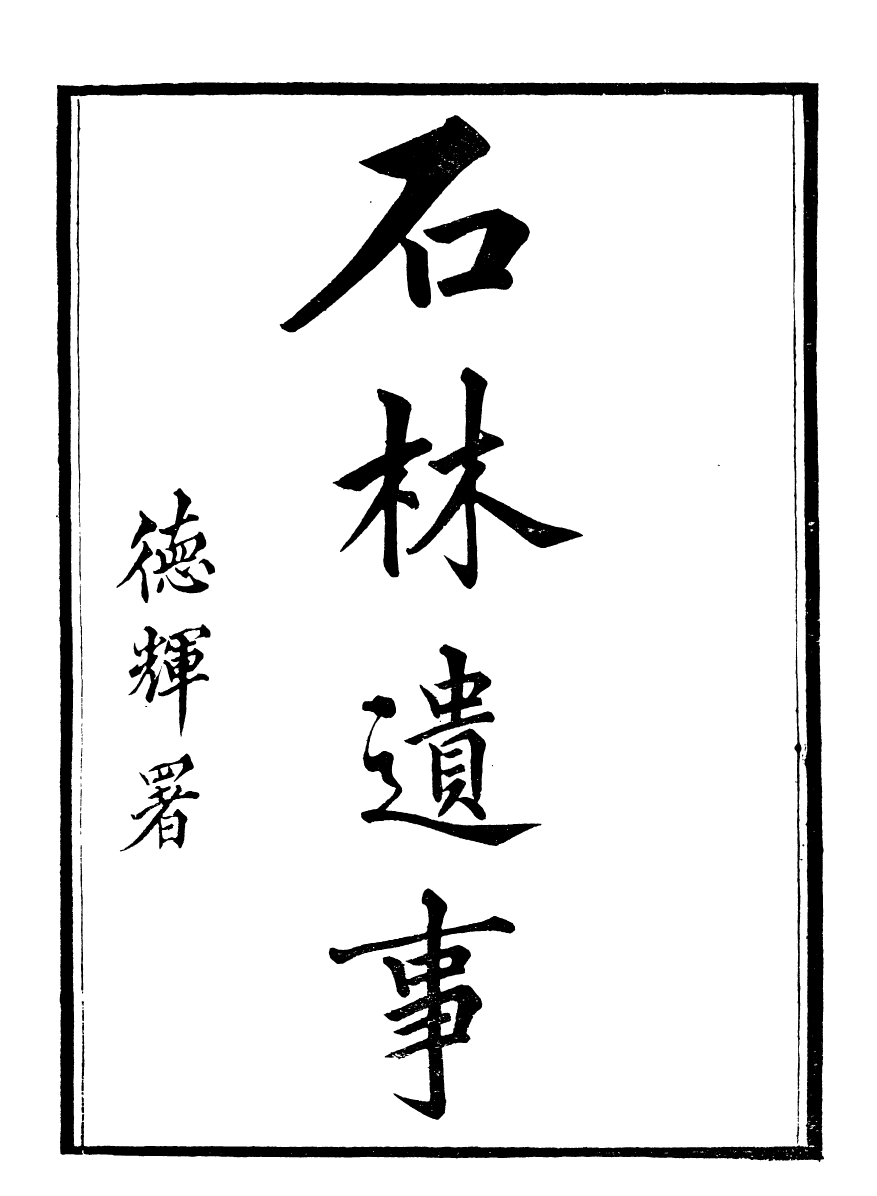 石林遺事
德輝署